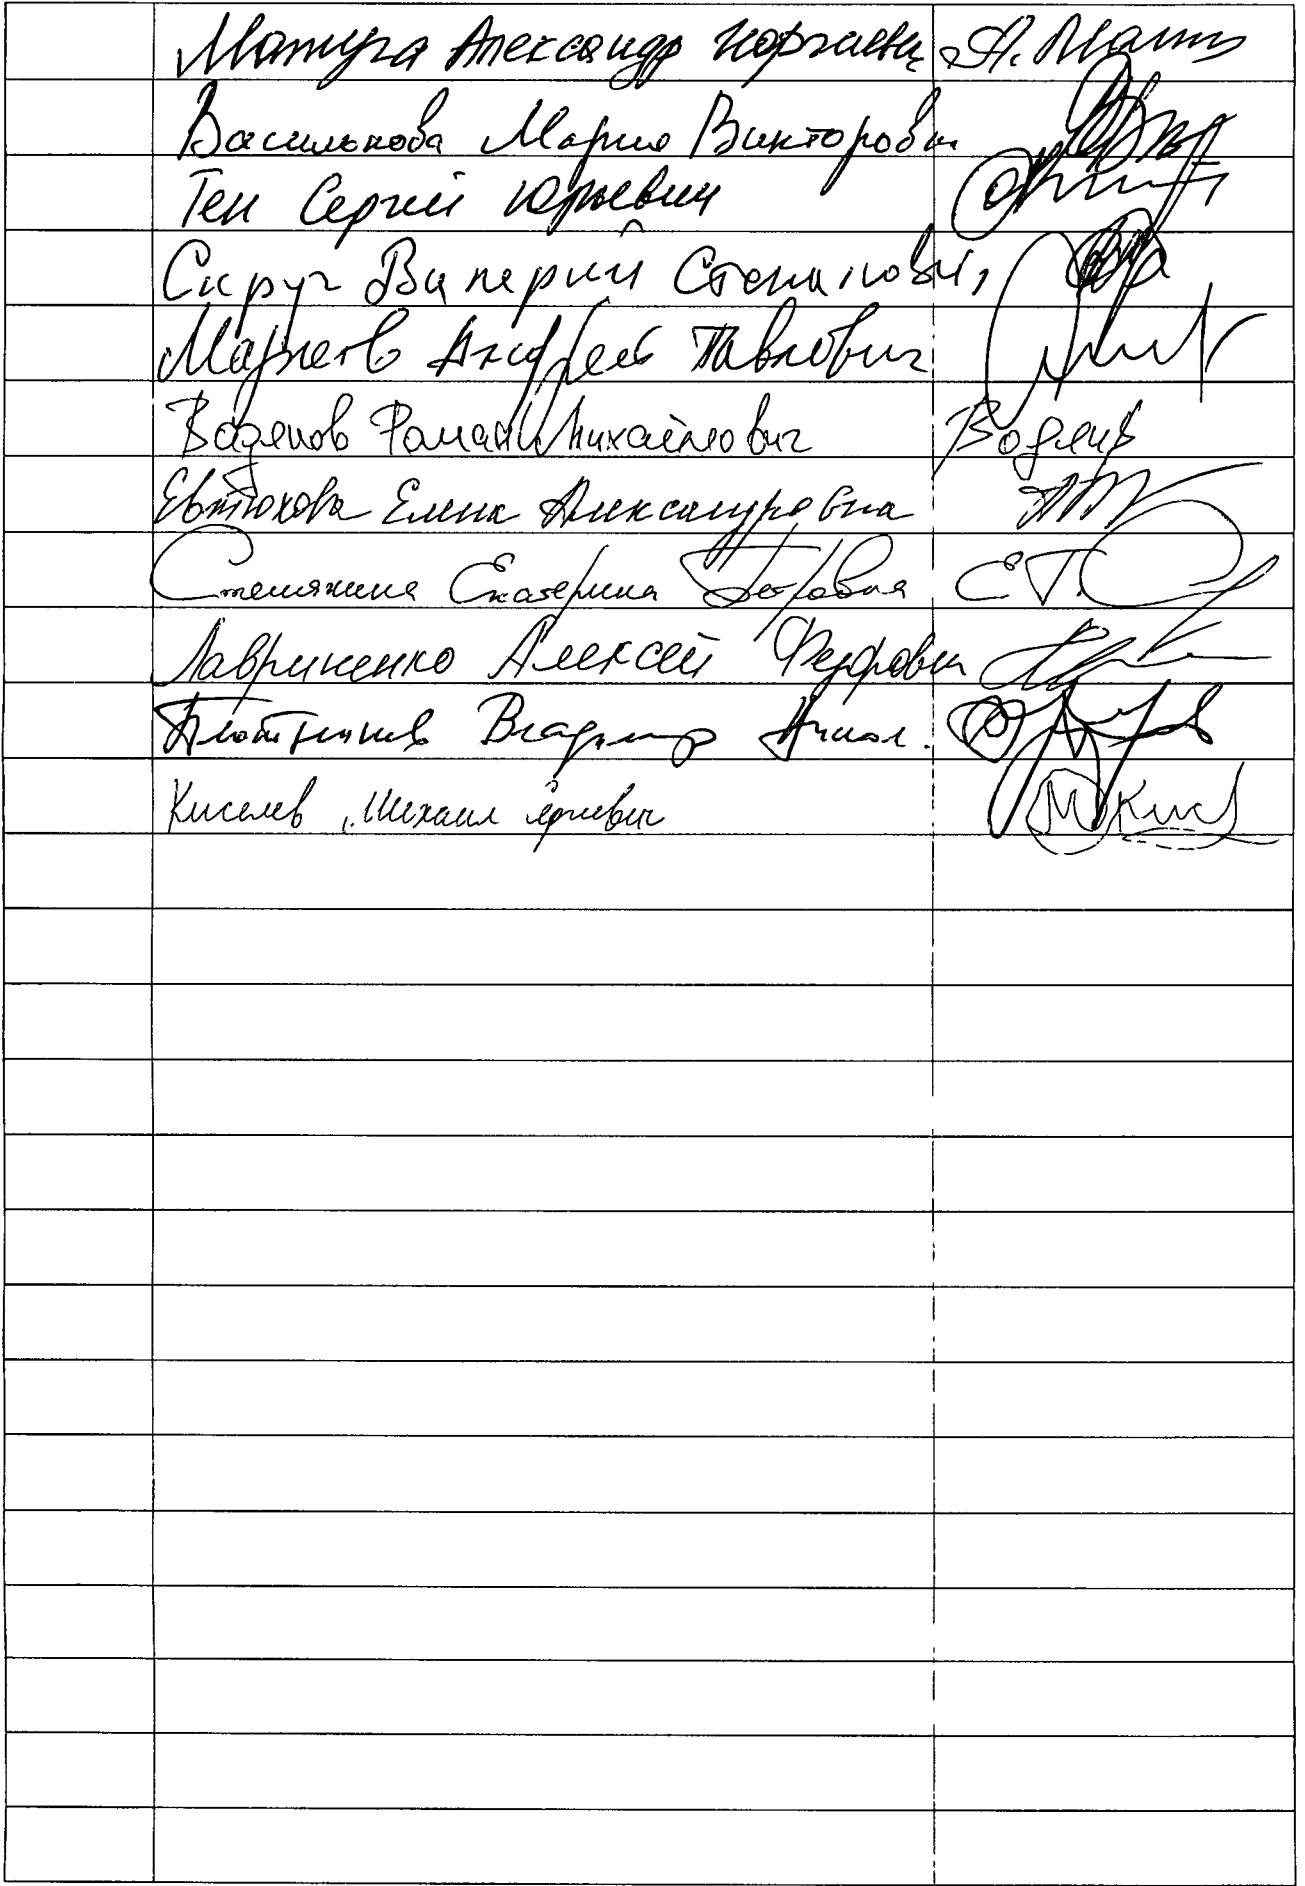 Мотуга Александр А. Мотуг
Василькова Мария Викторовн
Тен Сергей Юрьевич
Скруг Валерий Степанович
Андрей Павлович
Водянов Роман Михайлович Водянв
Евтюхова Елена Александровна
Стенякина Екатерина Петровна ЕП.
Лавриненко Алексей Федорович
Плотников Владимир
Киселев Михаил М Кис